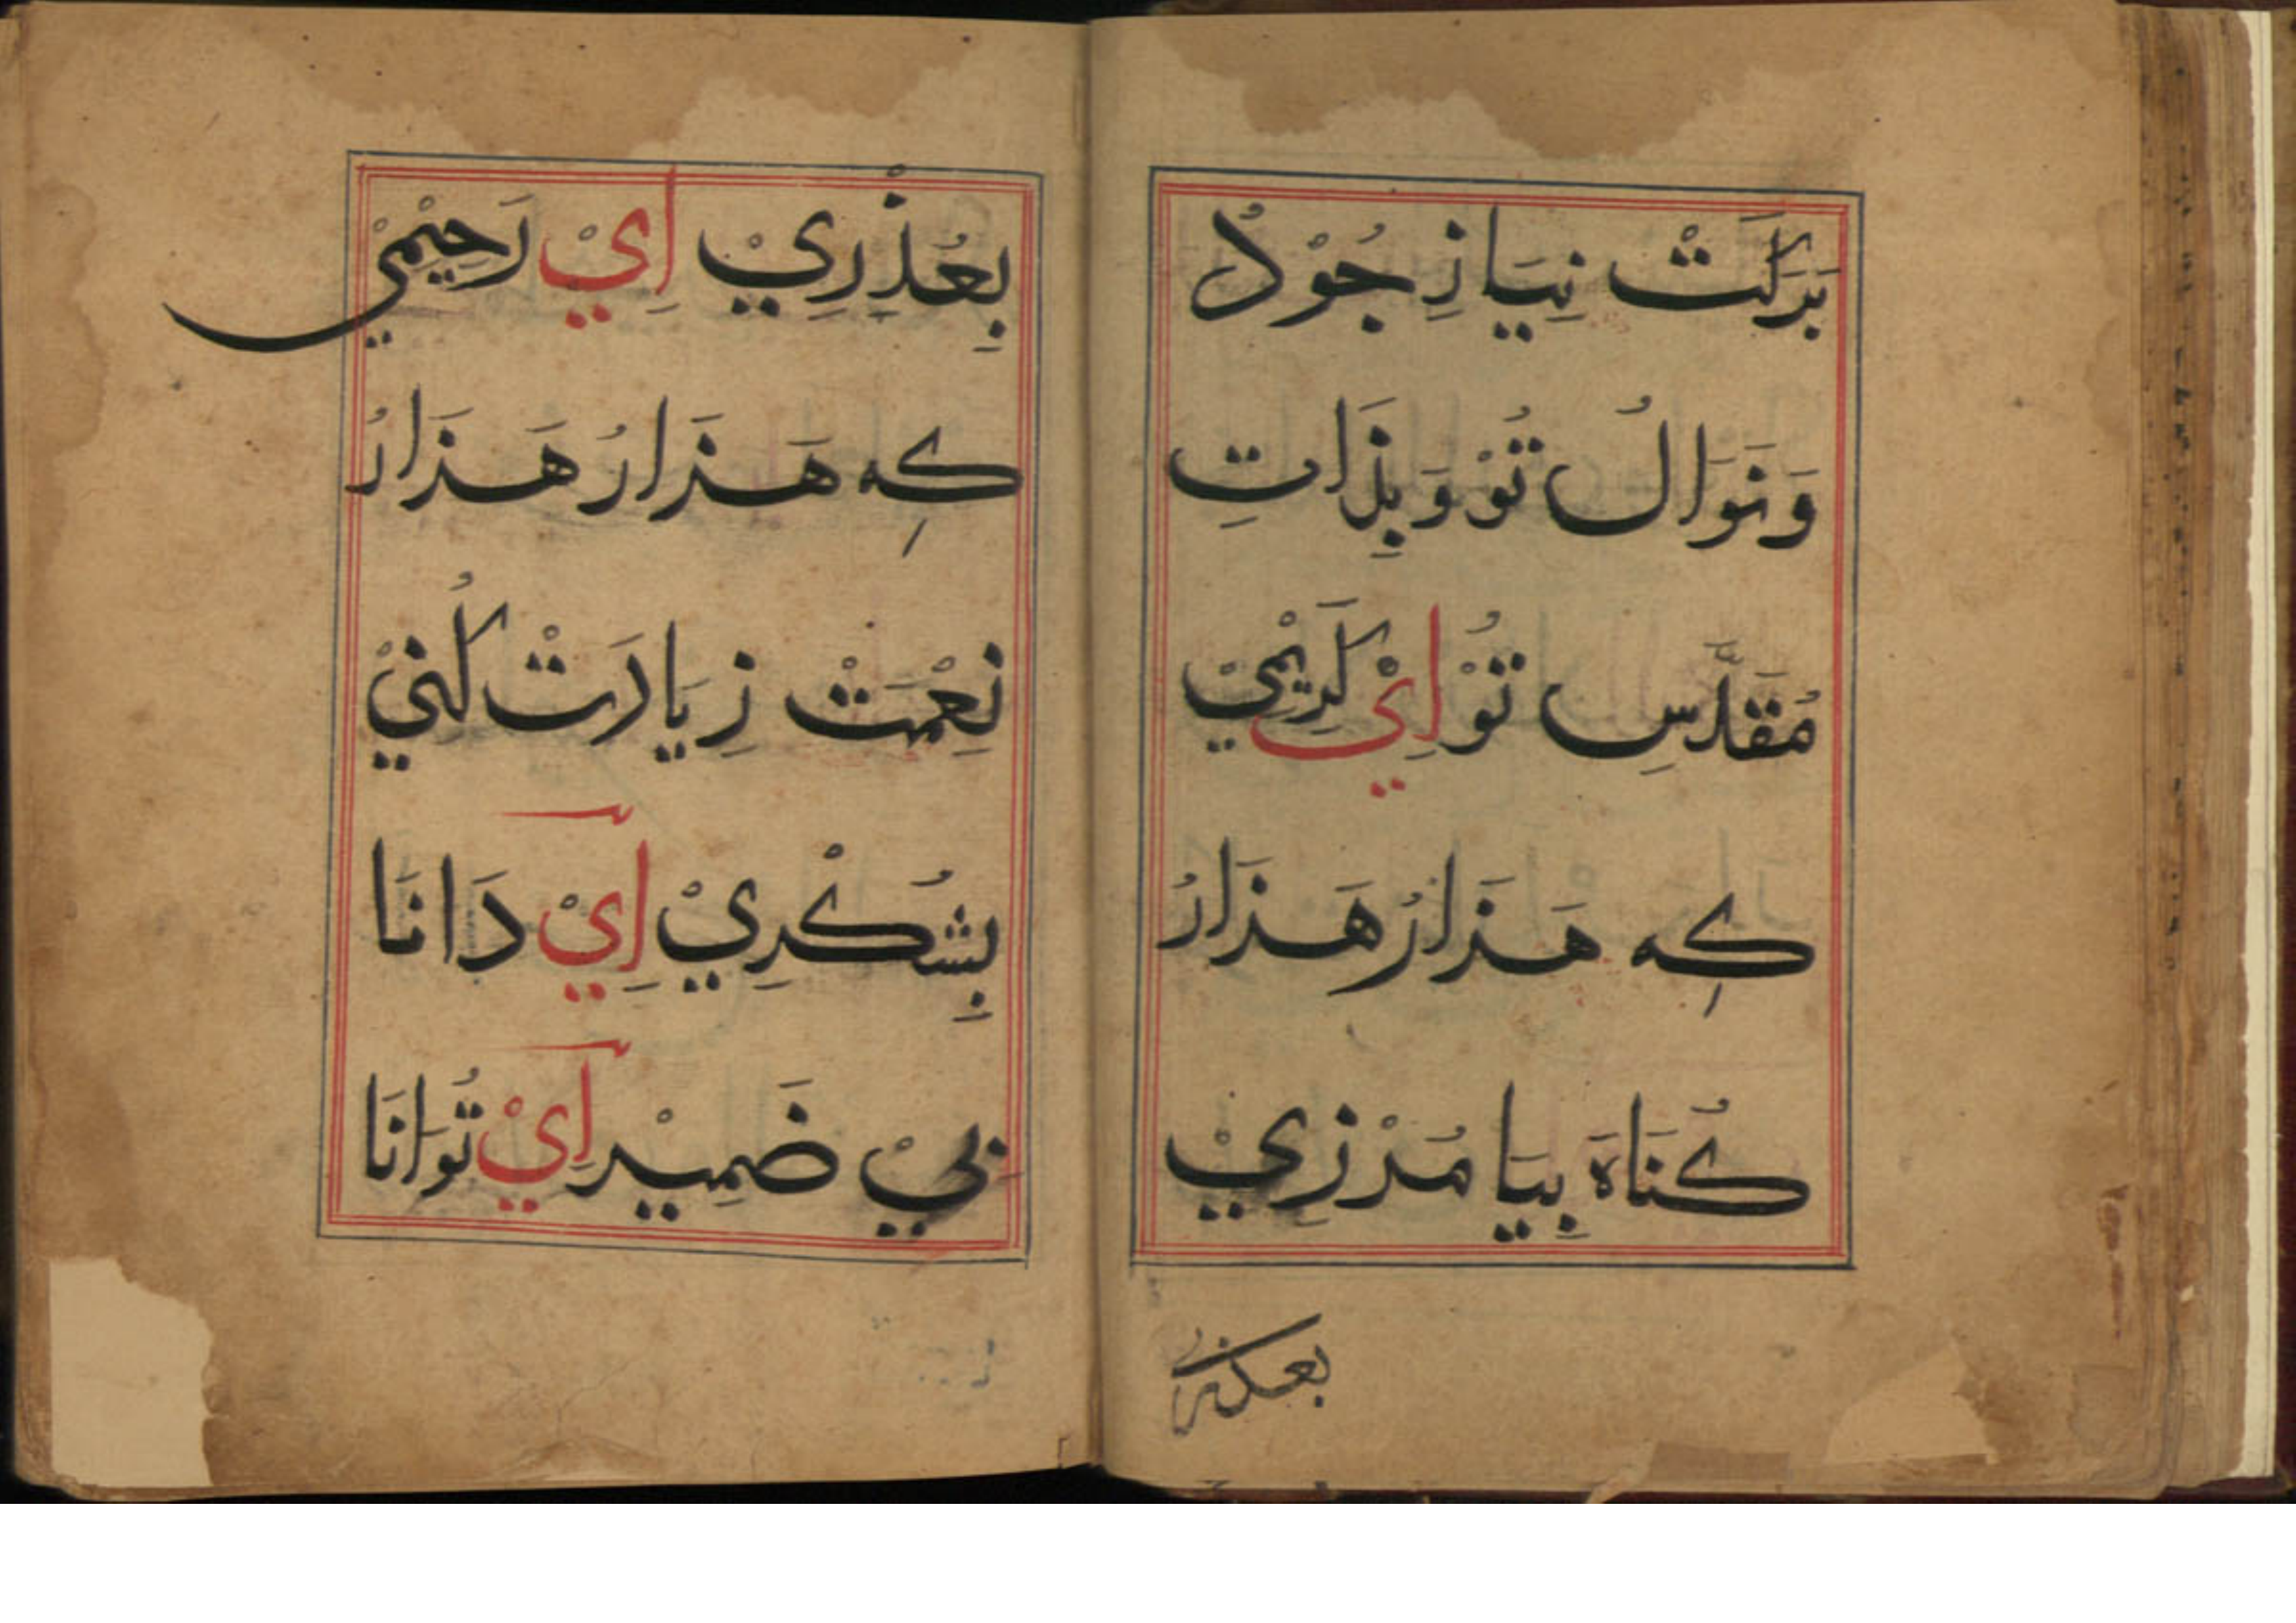 بَرَكَتْ نِيَازِ جُوْدُ
وَنَوَالُ تُوْ وَبِذَاتِ
مُقَدَّسِ تُوْ اِيْ كَرِيْمِيْ
كِه هَذَارُ هَذَارُ
كُنَاهَ بِيَا مُرْزِيْ
بِعُذْرِيْ اِيْ رَحِيْمِيْ
كِه هَذَارُ هَذَارُ
نِعْمَتْ زِيَارَتْ كُنِيْ
بِشُكْرِيْ اِيْ دَانَا
بِيْ ضَمِيْر اِيْ تُوَانَا